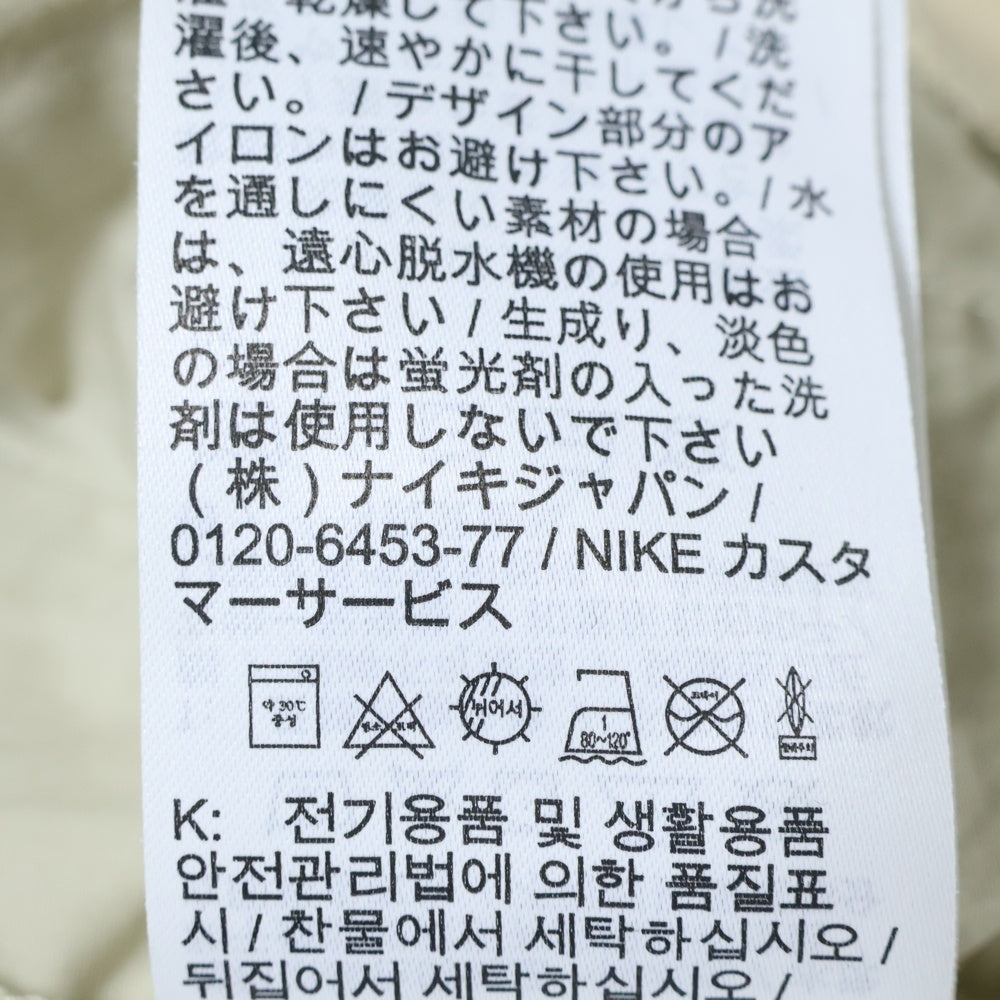 乾燥して下さい。
濯後、速やかに干して
さい。 / デザイン部分のア
イロンはお避け下さい。 / 水
を通しにくい素材の場合
は、遠心脱水機の使用はお
避け下さい / 生成り、淡色
の場合は蛍光剤の入った洗
剤は使用しないで下さい
(株)ナイキジャパン /
0120-6453-77 / NIKE カスタ
マーサービス
약 30℃ 중성
뒤어서
1 80~120°
K: 전기용품 및 생활용품
안전관리법에 의한 품질표
시 / 찬물에서 세탁하십시오 /
뒤집어서 세탁하십시오 /